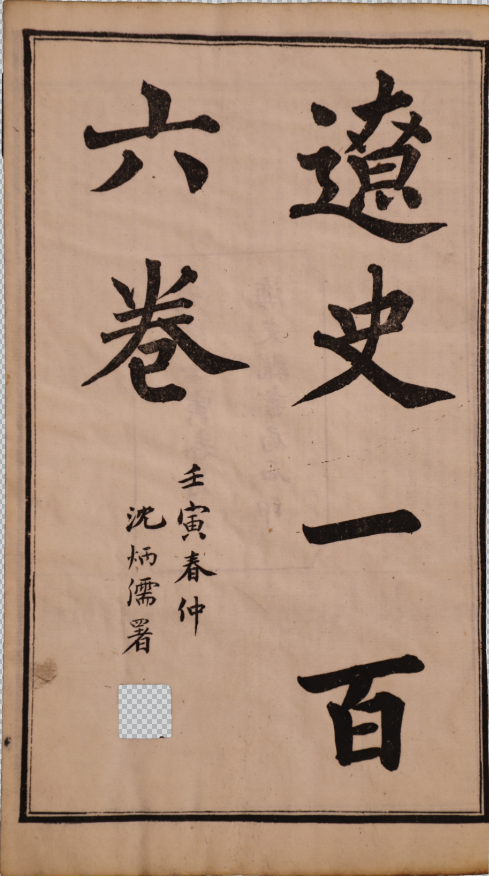 遼史一百
六卷
壬寅春仲
沈炳儒署